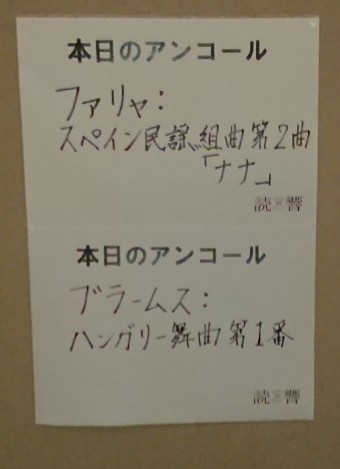 本日のアンコール
ファリャ：
スペイン民謡組曲第2曲
「ナナ」
読響
本日のアンコール
ブラームス：
ハンガリー舞曲第1番
読響